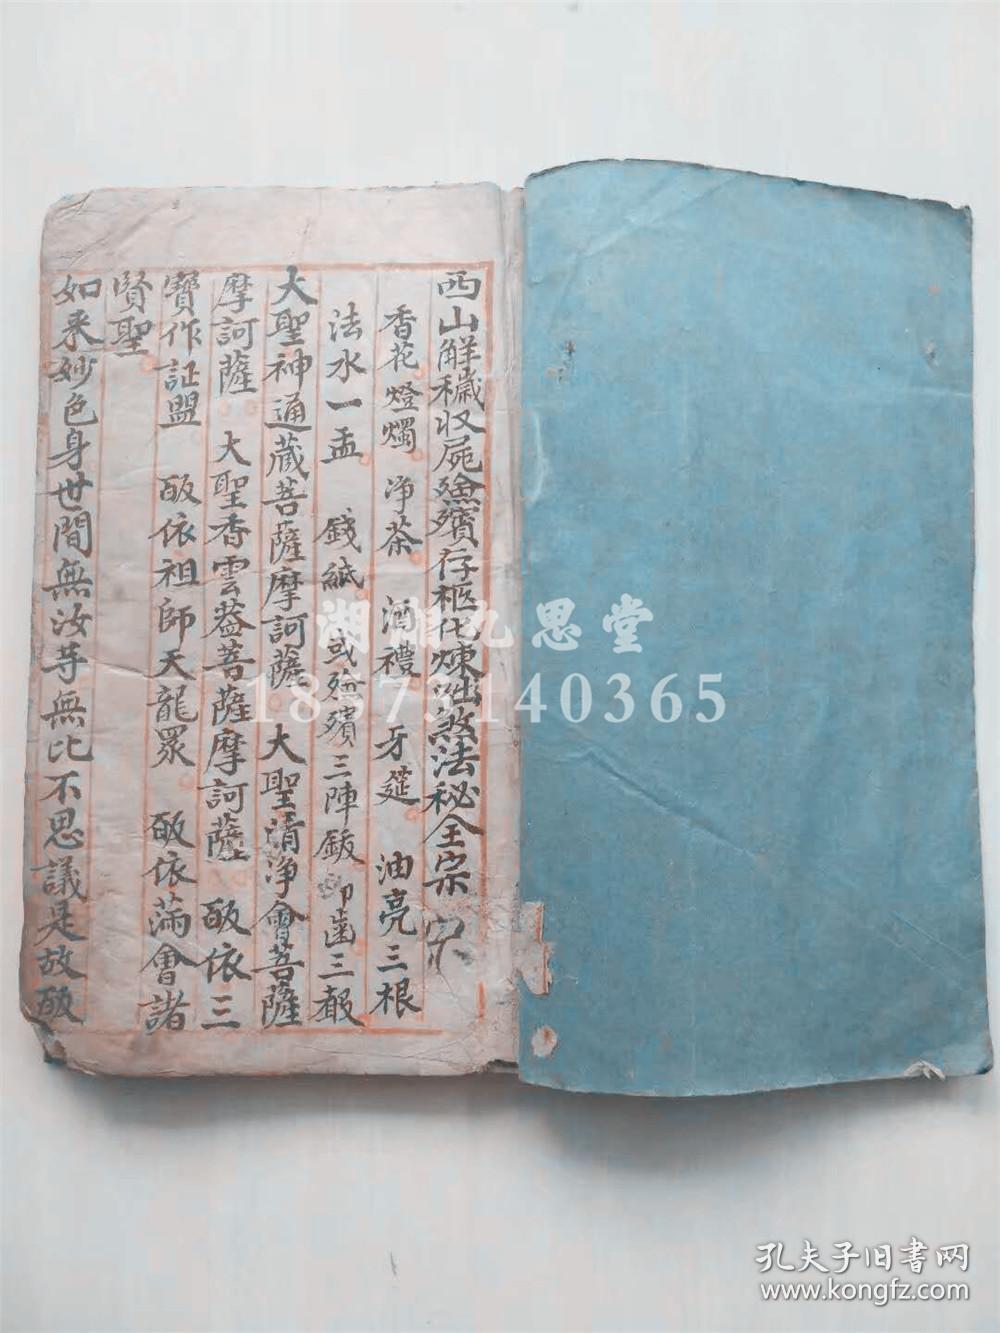 西山解穢收屍殮殯存柩化煉出煞法秘全宗
香花燈燭 净茶 酒禮 牙筵 油亮三根
法水一盂 錢紙 或殮殯三陣鈸 叩齒三㲉
大聖神通藏菩薩摩訶薩 大聖清净會菩薩
摩訶薩 大聖香雲蓋菩薩摩訶薩 皈依三
寶作証盟 皈依祖師天龍眾 皈依滿會諸
賢聖
如来妙色身世間無汝等無比不思議是故皈
湖湘九思堂
18573140365
孔夫子旧書网
www.kongfz.com